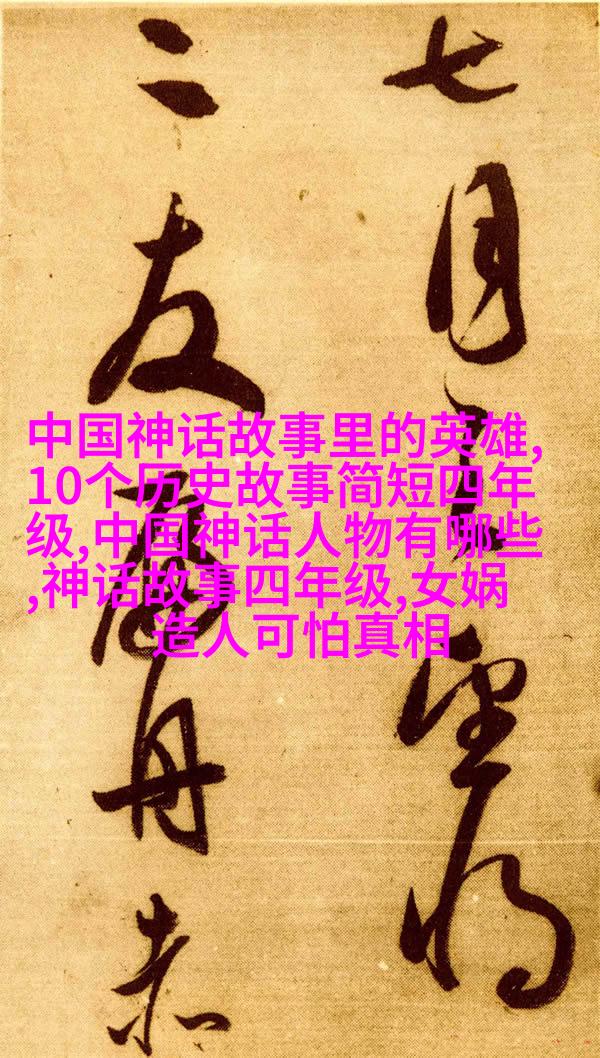 七月望將
二友舟赤
中国神话故事里的英雄,
10个历史故事简短四年
级,中国神话人物有哪些
,神话故事四年级,女娲
造人可怕真相